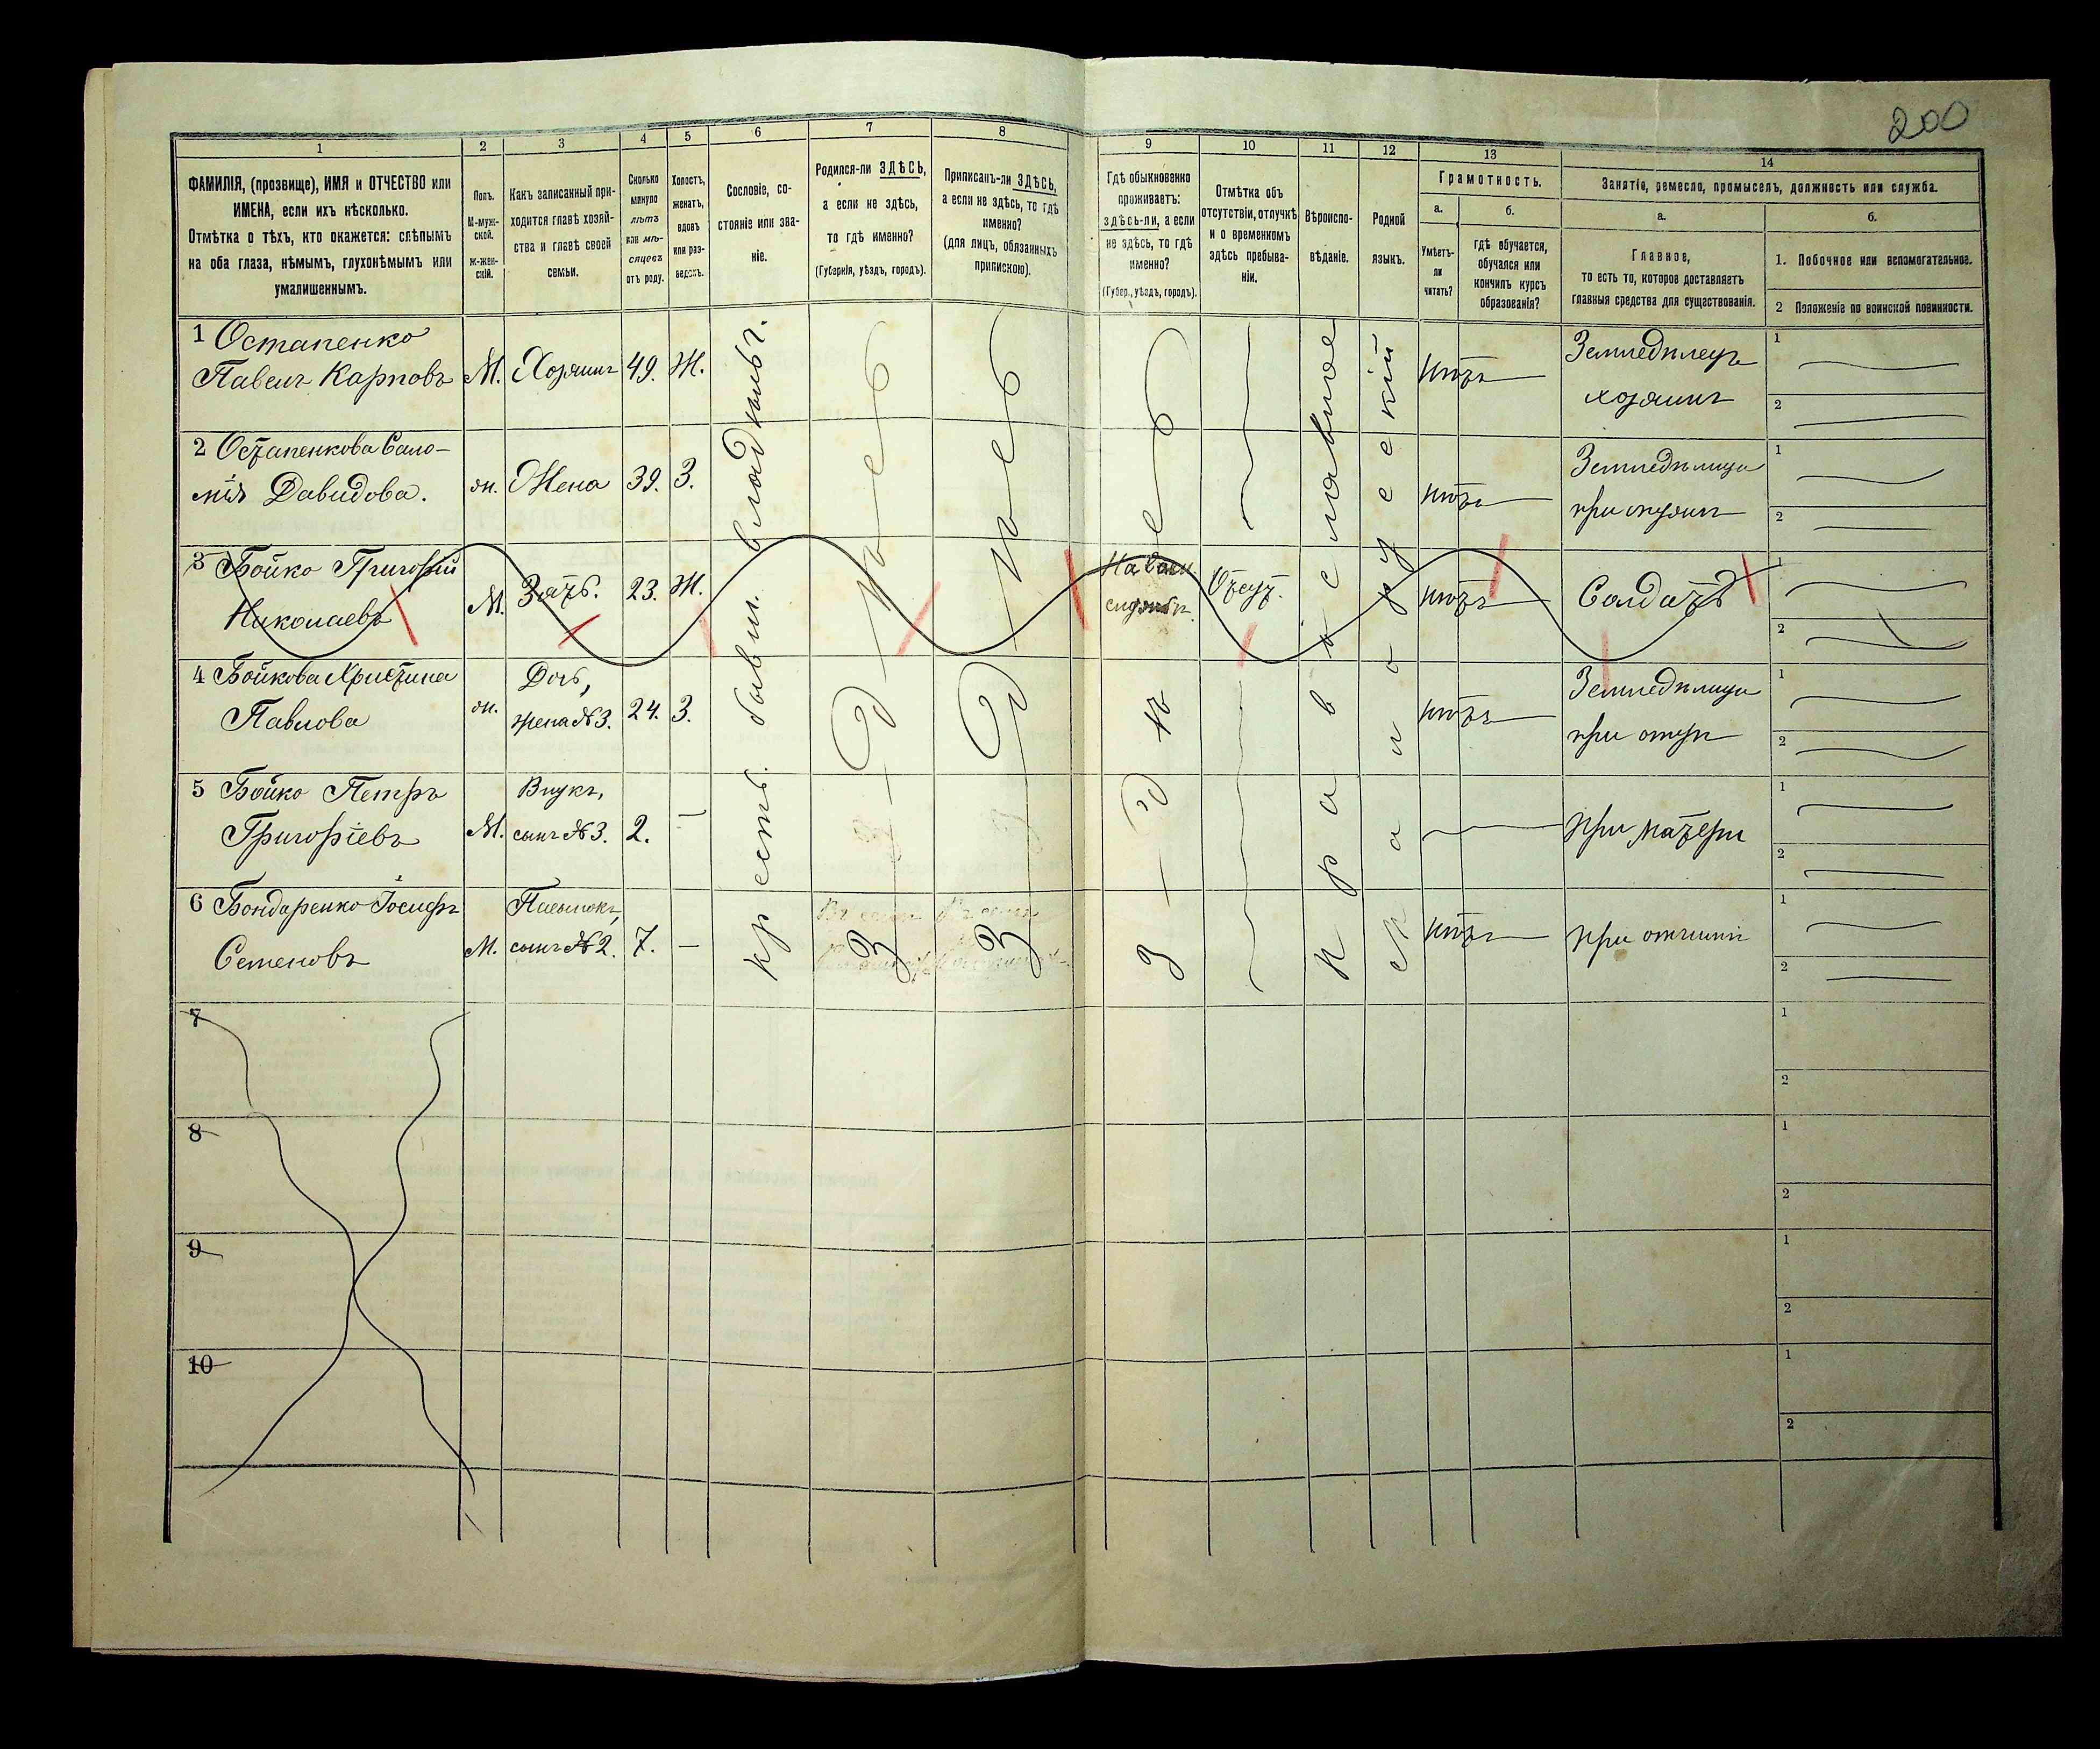 200
1
2
3
4
5
6
7
8
9
10
11
12
13
14
ФАМИЛІЯ, (прозвище), ИМЯ и ОТЧЕСТВО или
ИМЕНА, если ихъ нѣсколько.
Отмѣтка о тѣхъ, кто окажется: слѣпымъ
на оба глаза, нѣмымъ, глухонѣмымъ или
умалишеннымъ.
Полъ.
М-муж-
ской.
Ж-жен-
скій.
Какъ записанный при-
ходится главѣ хозяй-
ства и главѣ своей
семьи.
Сколько
минуло
лѣтъ
или мѣ-
сяцевъ
отъ роду.
Холостъ,
женатъ,
вдовъ
или раз-
веденъ.
Сословіе, со-
стояніе или зва-
ніе.
Родился-ли ЗДѢСЬ,
а если не здѣсь,
то гдѣ именно?
(Губернія, уѣздъ, городъ).
Приписанъ-ли ЗДѢСЬ,
а если не здѣсь, то гдѣ
именно?
(для лицъ, обязанныхъ
припискою).
Гдѣ обыкновенно
проживаетъ:
здѣсь-ли, а если
не здѣсь, то гдѣ
именно?
(Губер., уѣздъ, городъ).
Отмѣтка объ
отсутствіи, отлучкѣ
и о временномъ
здѣсь пребыва-
ніи.
Вѣроиспо-
вѣданіе.
Родной
языкъ.
Грамотность.
а.
б.
Умѣетъ-
ли
читать?
гдѣ обучается,
обучался или
кончилъ курсъ
образованія?
Занятіе, ремесло, промыселъ, должность или служба.
а.
б.
Главное,
то есть то, которое доставляетъ
главныя средства для существованія.
1. Побочное или вспомогательное.
2 Положеніе по воинской повинности.
1 Остапенко
Павелъ Карповъ
М. Хозяинъ 49. Ж.
нѣтъ
Земледѣлецъ
хозяинъ
1
2
2 Остапенкова Сало-
мія Давидова.
ж. Жена 39. З.
нѣтъ
Земледѣлица
при мужѣ
1
2
3 Бойко Григорій
Николаевъ
М. Зять. 23. Ж.
На воен.
службѣ.
Отсут.
нѣтъ
Солдатъ
1
2
4 Бойкова Христина
Павлова
ж. Дочь,
жена №3. 24. З.
нѣтъ
Земледѣлица
при отцѣ
1
2
5 Бойко Петръ
Григоріевъ
М. Внукъ,
сынъ №3. 2. —
при матери
1
2
6 Бондаренко Іосифъ
Семеновъ
М. Пасынокъ,
сынъ №2. 7. —
нѣтъ
при отчимѣ
1
2
крестъ. бывш. владѣльч.
З-дѣсь
З-дѣсь
З-дѣсь
православное
малорусскій
7
1
2
8
1
2
9
1
2
10
1
2